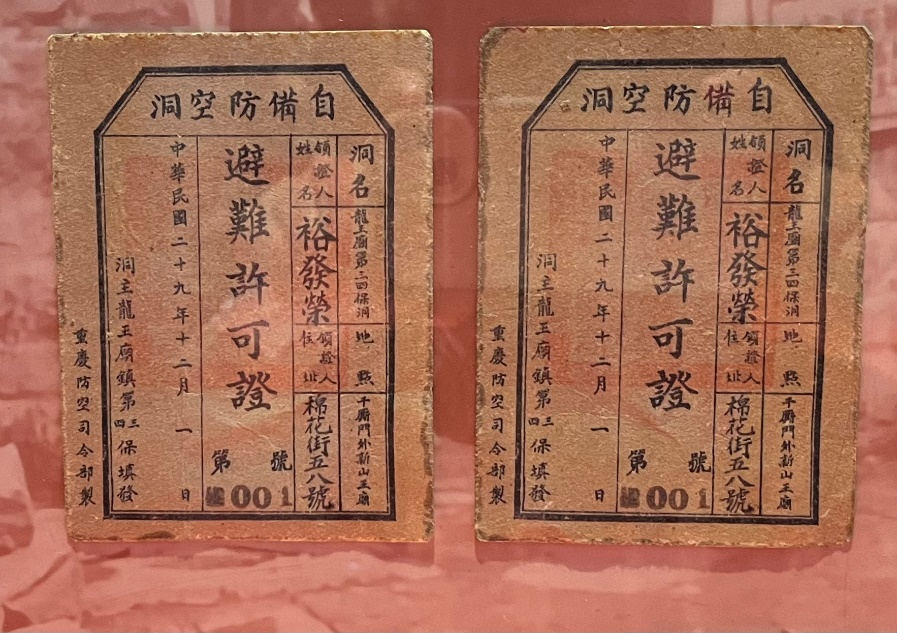 自備防空洞
洞名
龍王廟第三四保洞
地點
千廝門外新山王廟
領證人姓名
裕發榮
領證人住址
棉花街五八號
避難許可證
第 號
001
中華民國二十九年十二月一日
洞主龍王廟鎮第三四保填發
重慶防空司令部製
自備防空洞
洞名
龍王廟第三四保洞
地點
千廝門外新山王廟
領證人姓名
裕發榮
領證人住址
棉花街五八號
避難許可證
第 號
001
中華民國二十九年十二月一日
洞主龍王廟鎮第三四保填發
重慶防空司令部製